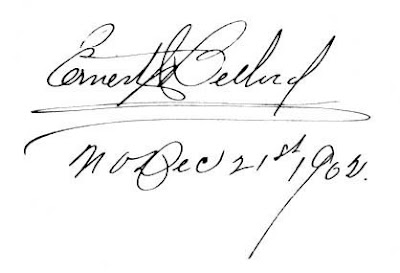 Ernest S Bellord
N O Dec 21st 1902.